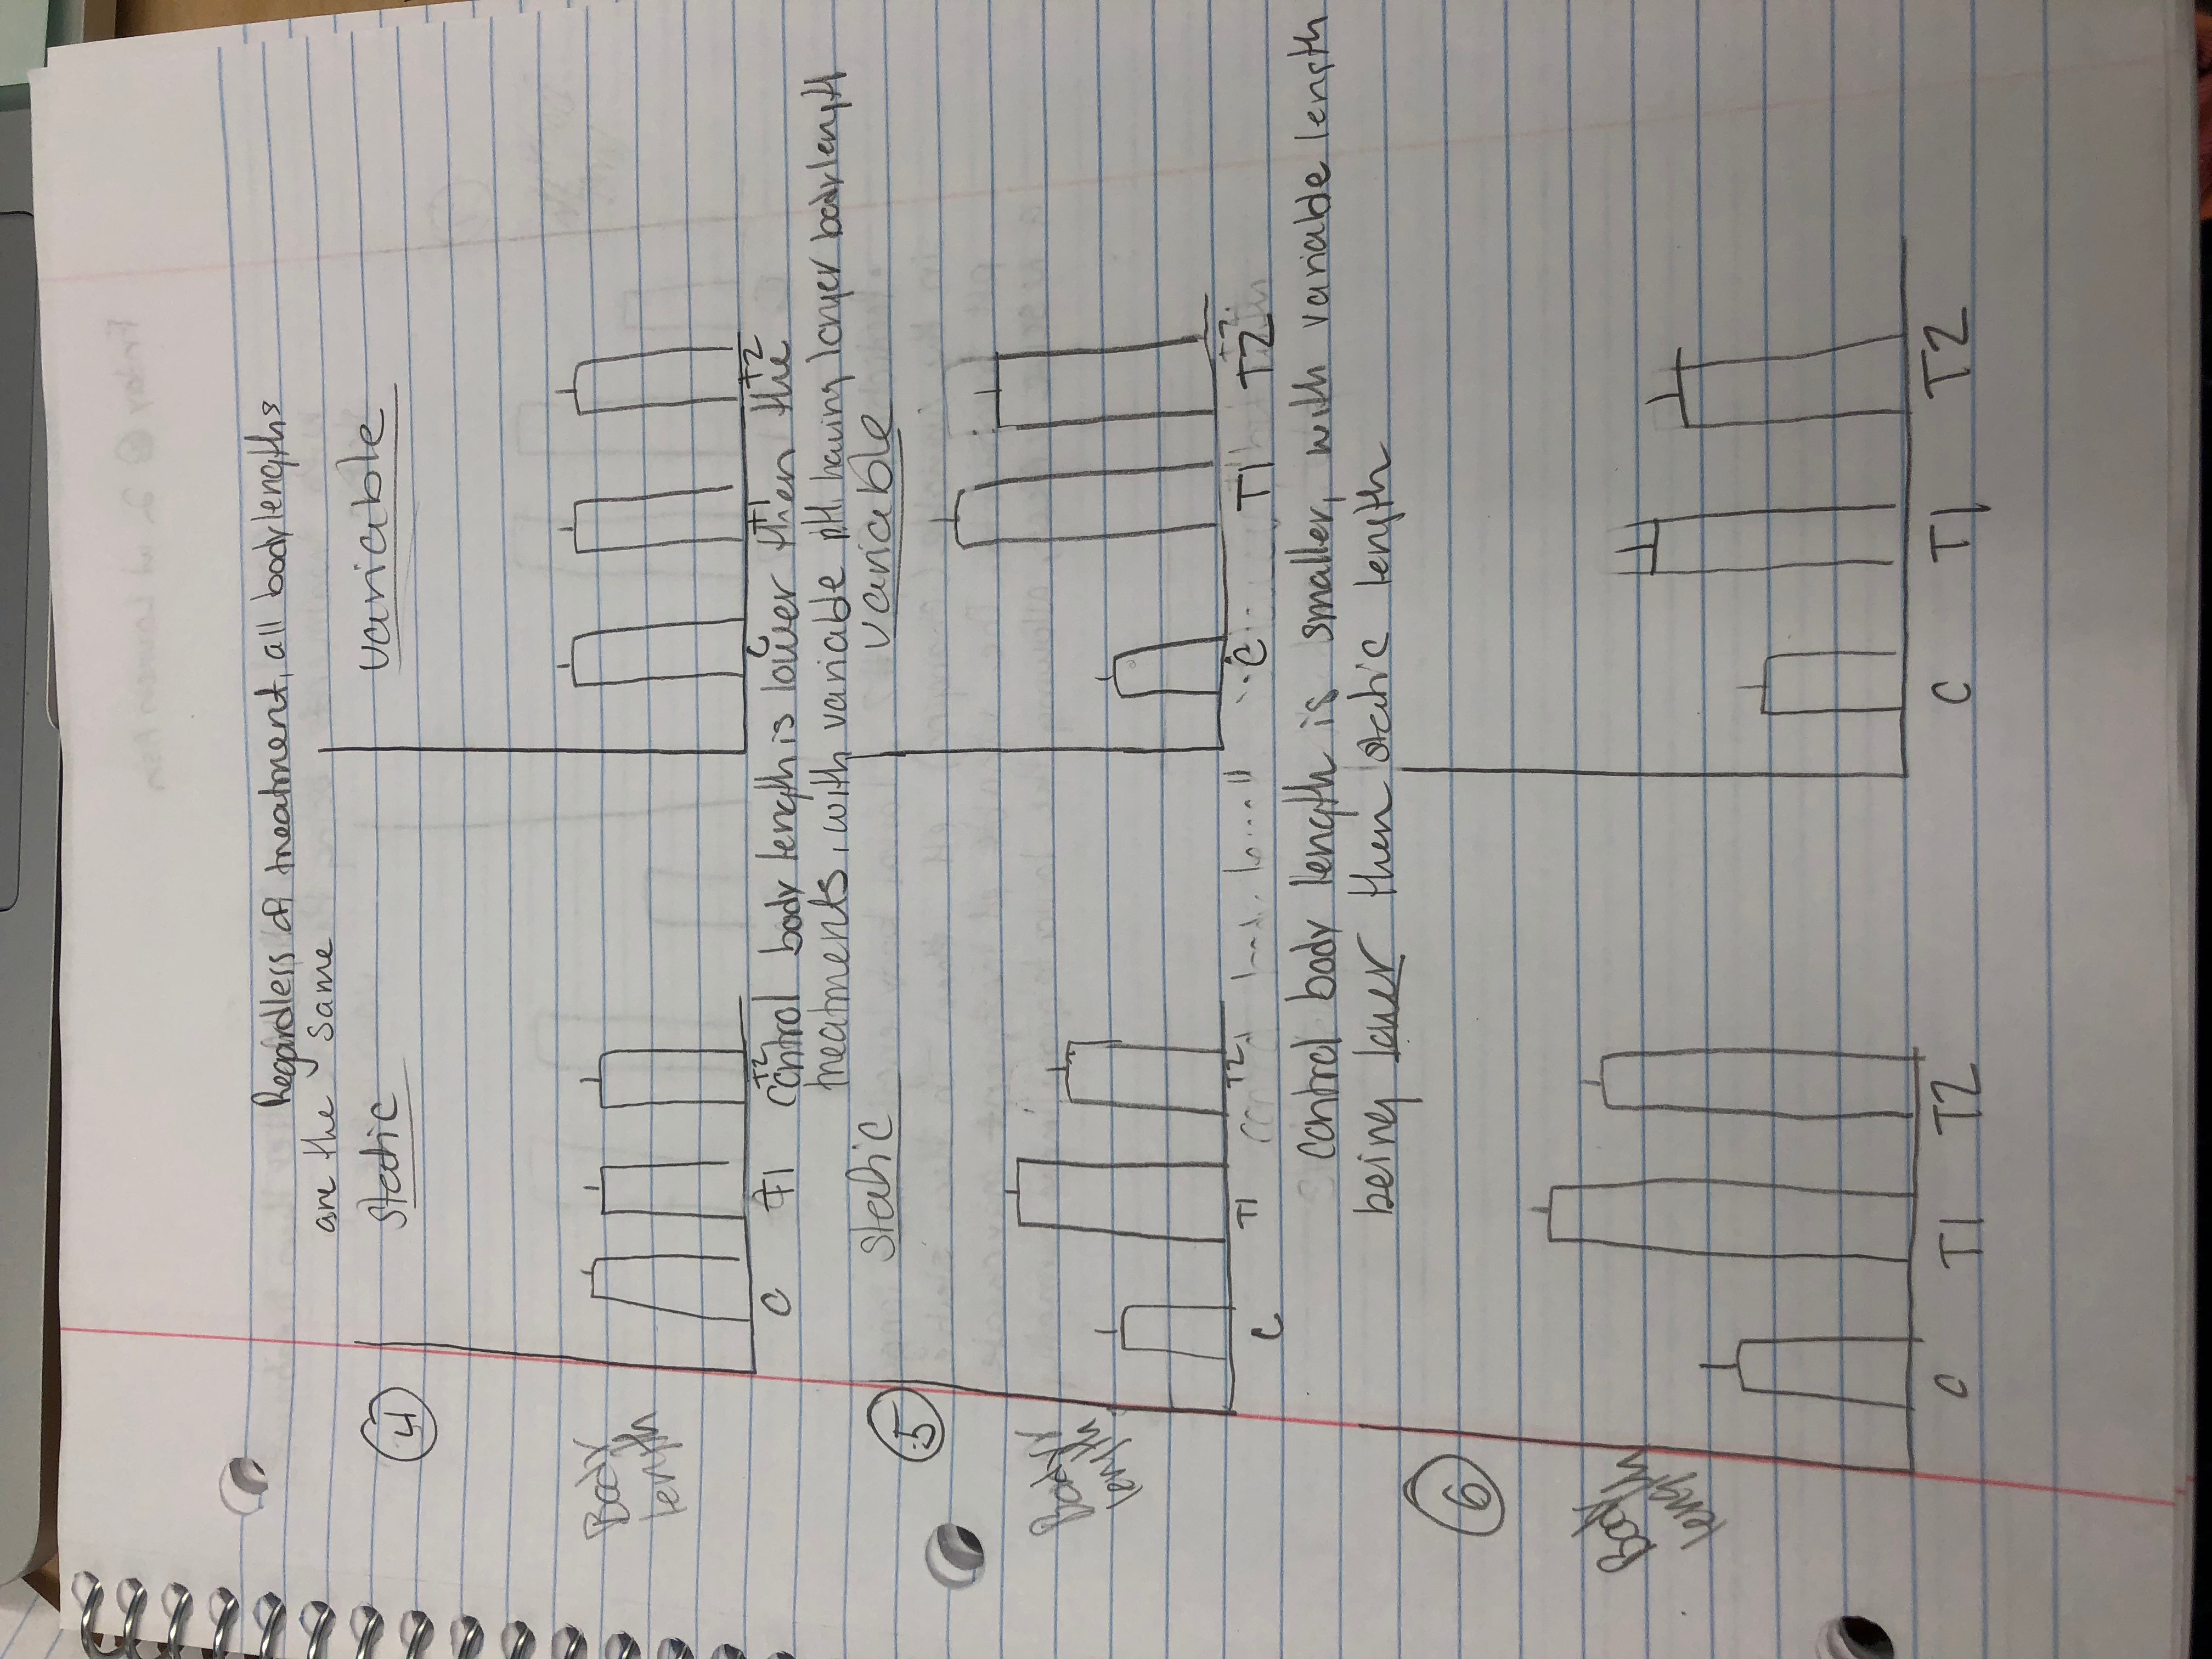 Regardless of treatment, all body lengths
are the same
4
static
variable
Body
length
C T1 T2
C T1 T2
Control body length is lower then the
treatments, with variable pH having longer body length
5
static
variable
Body
length
C T1 T2
C T1 T2 T2
Control body length is smaller, with variable length
being lower then static length
6
Body
length
C T1 T2
C T1 T2